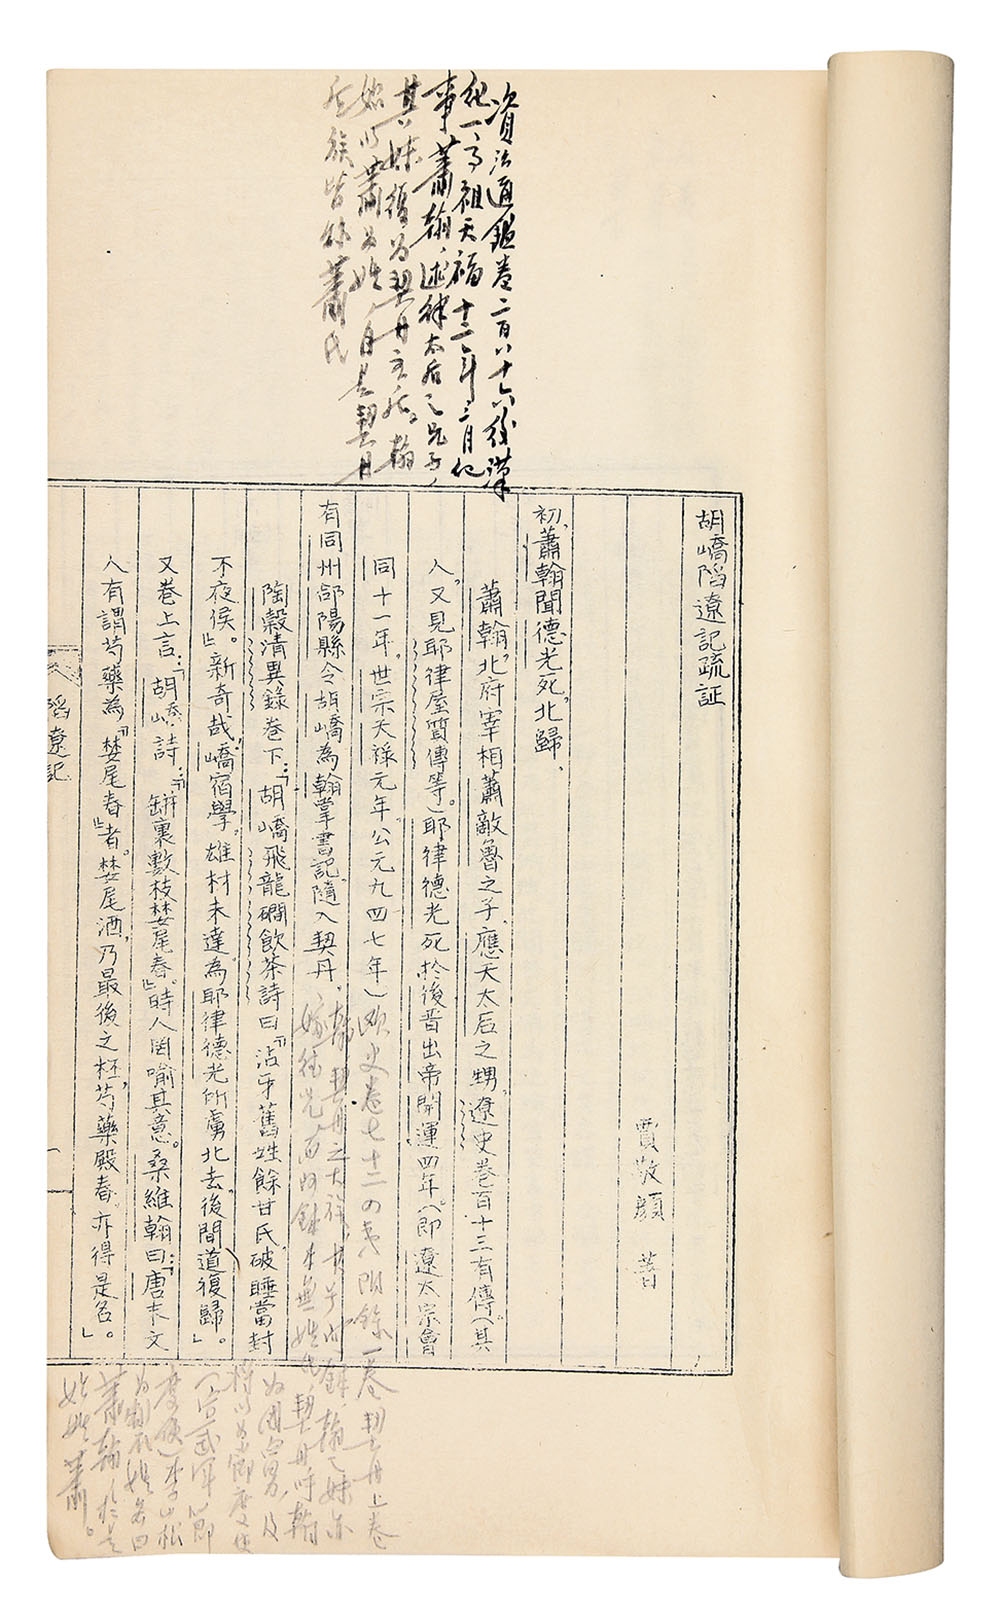 胡嶠陷遼記疏証
賈敬顔 著
初，蕭翰聞德光死，北歸、
蕭翰，北府宰相蕭敵魯之子，應天太后之甥，遼史卷百十三有傳（其
人又見耶律屋質傳等）。耶律德光死於後晉出帝開運四年（即遼太宗會
同十一年，世宗天祿元年，公元九四七年）
有同州郃陽縣令胡嶠為翰掌書記，隨入契丹，
陶穀清異錄卷下：「胡嶠飛龍磵飲茶詩曰『沾牙舊姓餘甘氏，破睡當封
不夜侯。』新奇哉，嶠宿學，雄材未達，為耶律德光所虜北去，後間道復歸」。
又卷上言：「胡嶠詩：『缾裏數枝婪尾春。』時人罔喻其意。桑維翰曰：『唐末文
人有謂芍藥為「婪尾春」者。婪尾酒，乃最後之杯，芍藥殿春，亦得是名。」
陷遼記
資治通鑑卷二百八十六後漢
紀一高祖天福十二年三月紀
事蕭翰，述律太后之兄子，
其妹復為契丹主后。翰
始以蕭為姓，自是契丹
后族皆稱蕭氏
歐史卷七十二四夷附錄一卷契丹上卷
翰，契丹之大族，其号阿鉢，翰之妹亦
嫁德光，而阿鉢本無姓氏，契丹呼翰
為國舅，及
將以為節度使
（宣武軍節
度使）李崧
為製姓名曰
蕭翰，於是
始姓蕭。